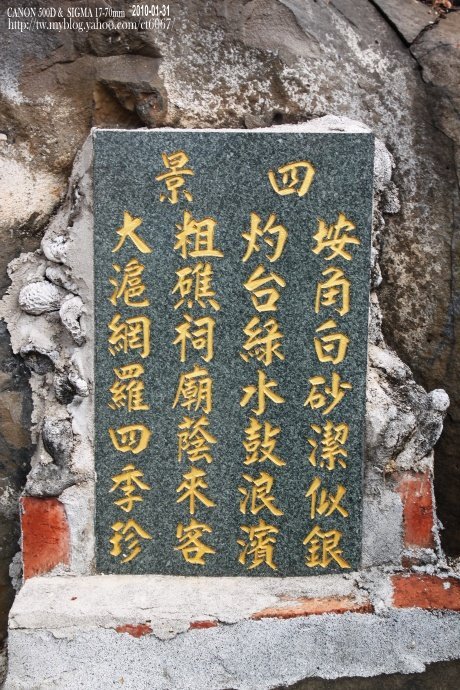 CANON 500D & SIGMA 17-70mm 2010-01-31
http://tw.myblog.yahoo.com/ct0067
四景
垵角白砂潔似銀
灼台綠水鼓浪濱
粗礁祠廟蔭來客
大滬網羅四季珍